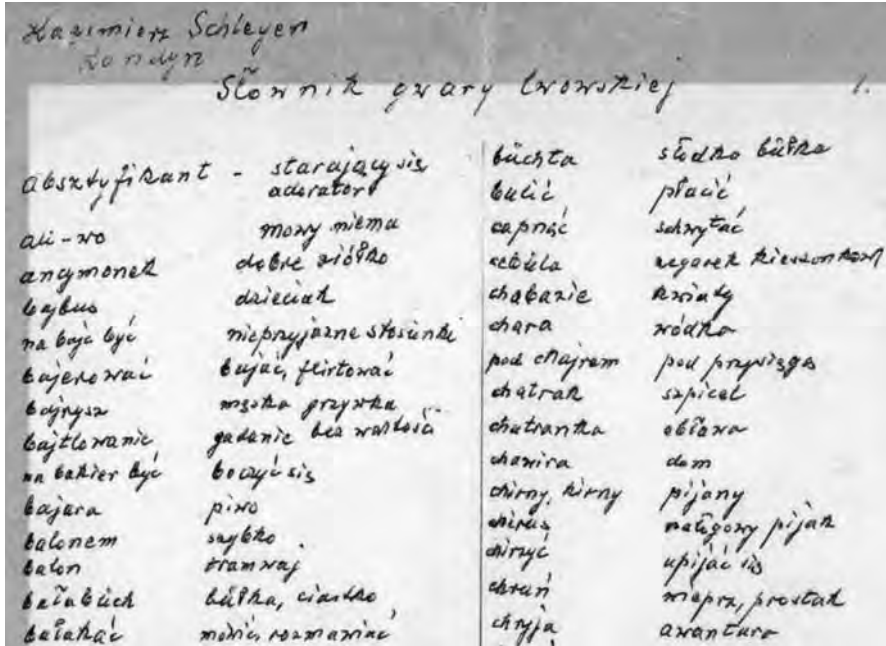 Kazimierz Schleyen
Londyn
Słownik gwary lwowskiej 1.
absztyfikant - starający się,
adorator
ali-wo mowy niema
ancymonek dobre ziółko
bajbus dzieciak
na bajc być nieprzyjazne stosunki
bajerować bujać, flirtować
bajrysz męska grzywka
bajtlowanie gadanie bez wartości
na bakier być boczyć się
bajara piwo
balonem szybko
balon tramwaj
bałabuch bułka, ciastko
bałakać mówić, rozmawiać
buchta słodka bułka
bulić płacić
capnąć schwytać
cebula zegarek kieszonkowy
chabazie kwiaty
chara wódka
pod chajrem pod przysięgą
chatrak szpicel
chatranka obława
chawira dom
chirny, kirny pijany
chirus nałogowy pijak
chirzyć upijać się
chruń wieprz, prostak
chryja awantura